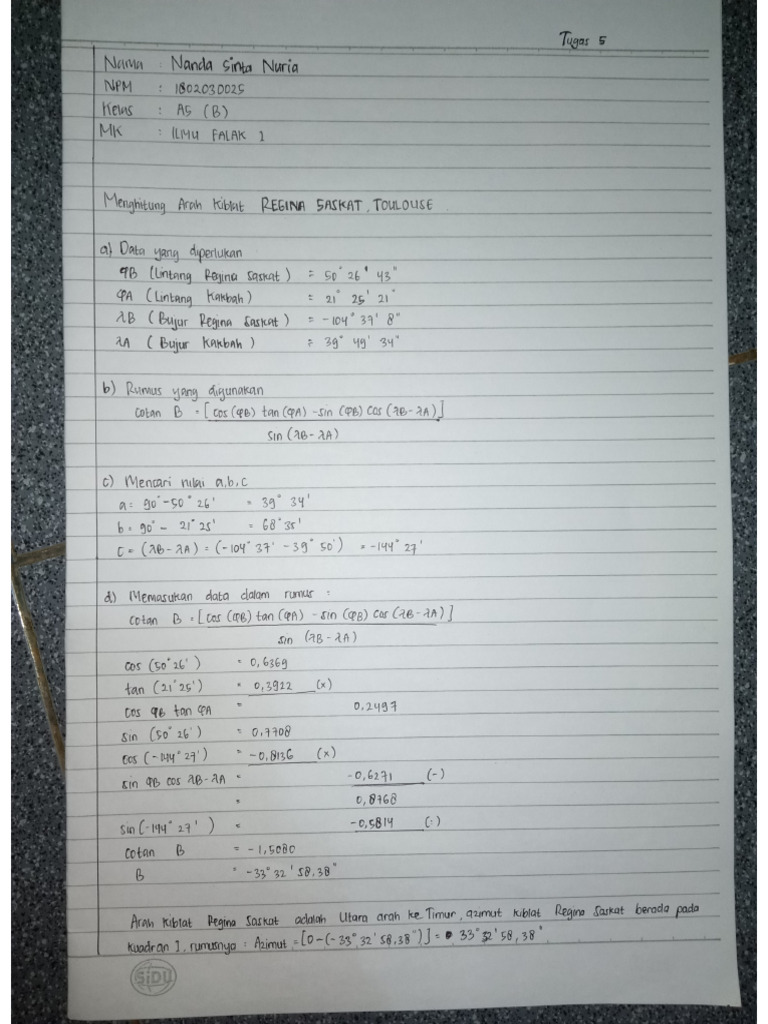 Tugas 5
Nama : Nanda Sinta Nuria
NPM : 1802030025
Kelas : AS (B)
MK : ILMU FALAK 1
Menghitung Arah Kiblat REGINA SASKAT, TOULOUSE
a) Data yang diperlukan
φB (Lintang Regina Saskat) = 50° 26' 43"
φA (Lintang Kakbah) = 21° 25' 21"
λB (Bujur Regina Saskat) = -104° 37' 8"
λA (Bujur Kakbah) = 39° 49' 34"
b) Rumus yang digunakan
Cotan B = [cos (φB) tan (φA) - sin (φB) cos (λB - λA)]
sin (λB - λA)
c) Mencari nilai a,b,c
a = 90° - 50° 26' = 39° 34'
b = 90° - 21° 25' = 68° 35'
C = (λB - λA) = (-104° 37' - 39° 50') = -144° 27'
d) Memasukan data dalam rumus :
Cotan B = [cos (φB) tan (φA) - sin (φB) cos (λB - λA)]
sin (λB - λA)
cos (50° 26') = 0,6369
tan (21° 25') = 0,3922 (x)
cos φB tan φA = 0,2497
sin (50° 26') = 0,7708
cos (-144° 27') = -0,8136 (x)
sin φB cos λB - λA = -0,6271 (-)
= 0,8768
sin (-144° 27') = -0,5814 (:)
cotan B = -1,5080
B = -33° 32' 58,38"
Arah kiblat Regina Saskat adalah Utara arah ke Timur, azimut kiblat Regina Saskat berada pada
kuadran I, rumusnya : Azimut = [0 - (-33° 32' 58,38")] = 33° 32' 58,38"
SiDU